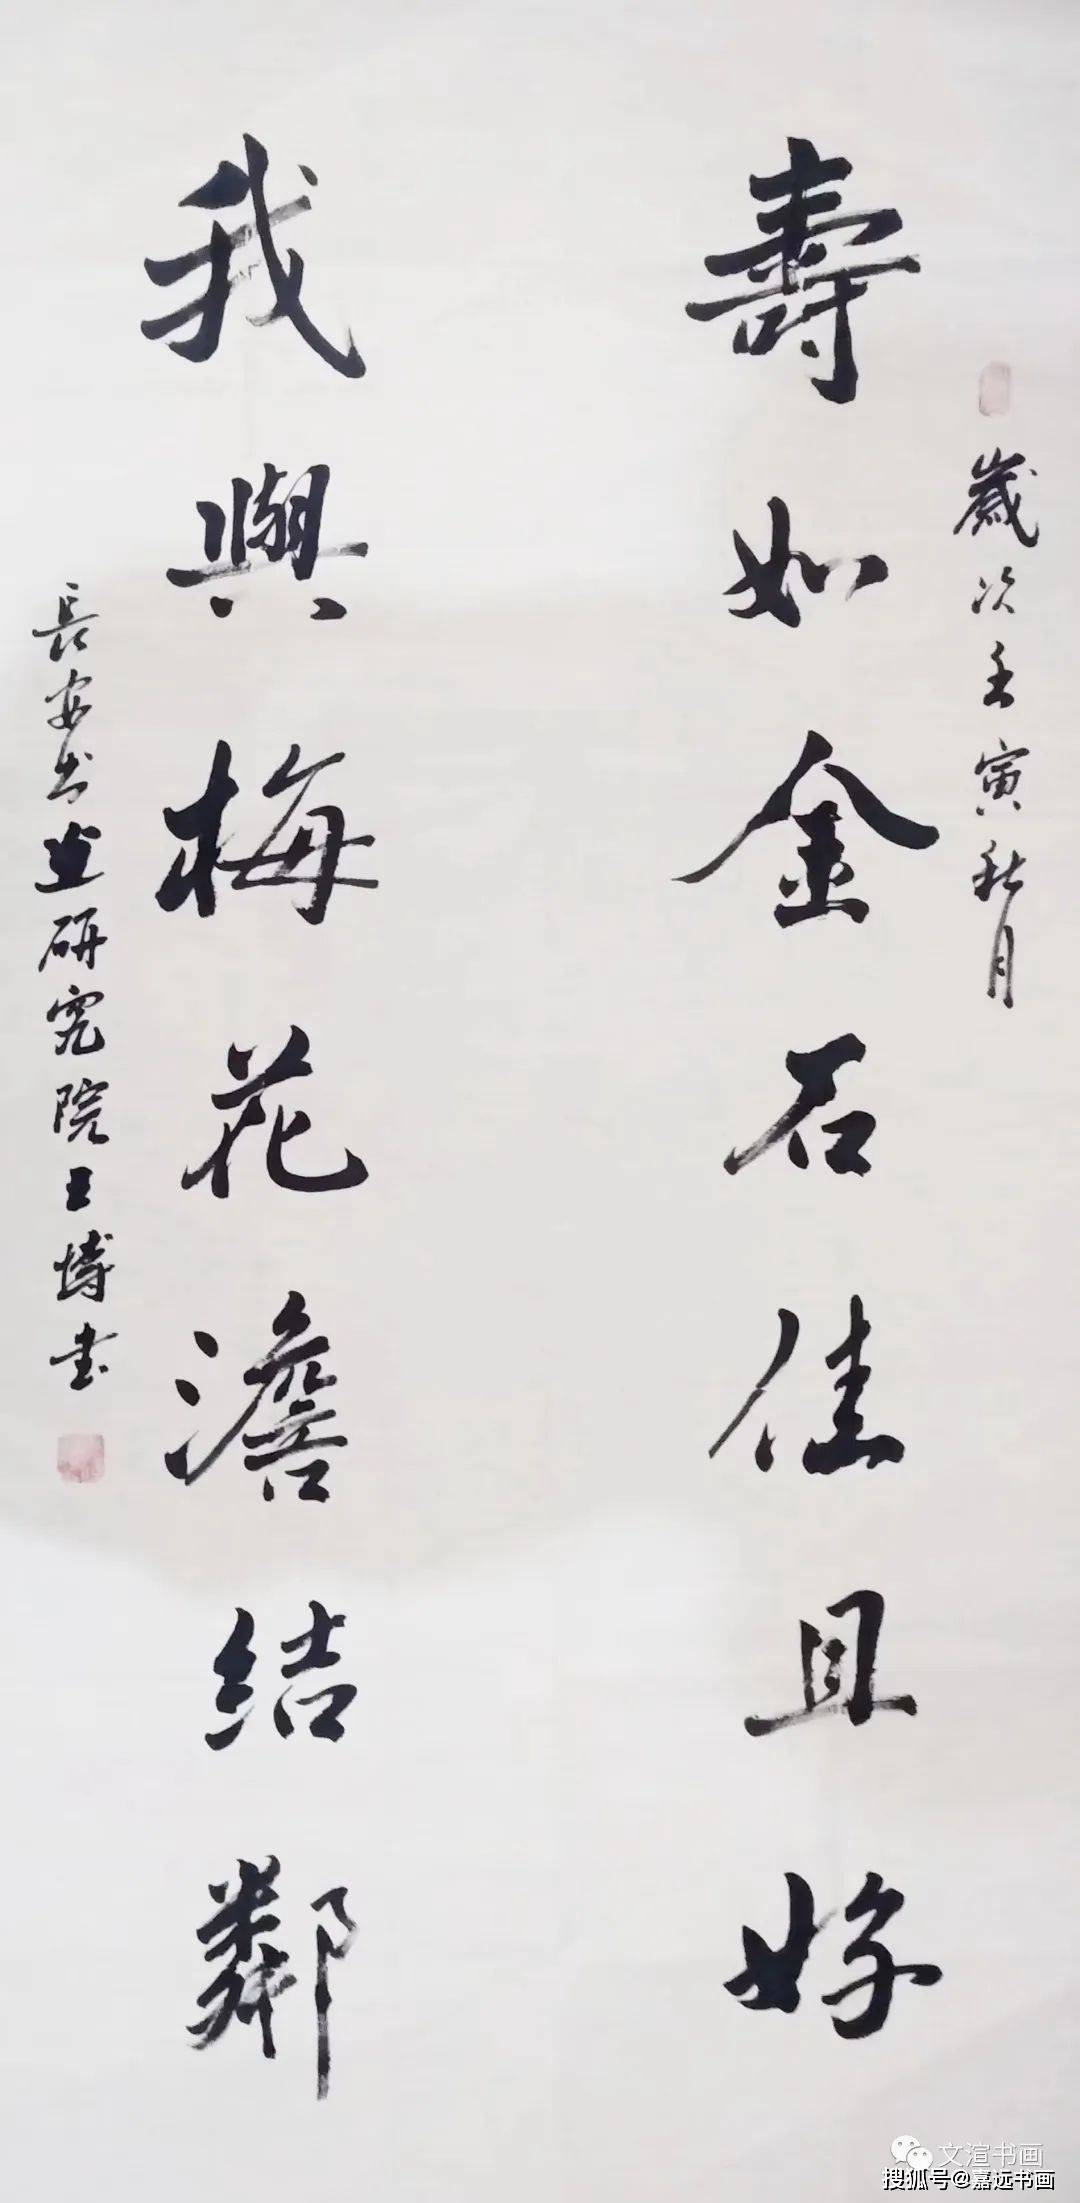 歲次壬寅秋月
壽如金石佳且好
我與梅花澹結鄰
長安书画研究院王博书
文渲书画
搜狐号@嘉远书画